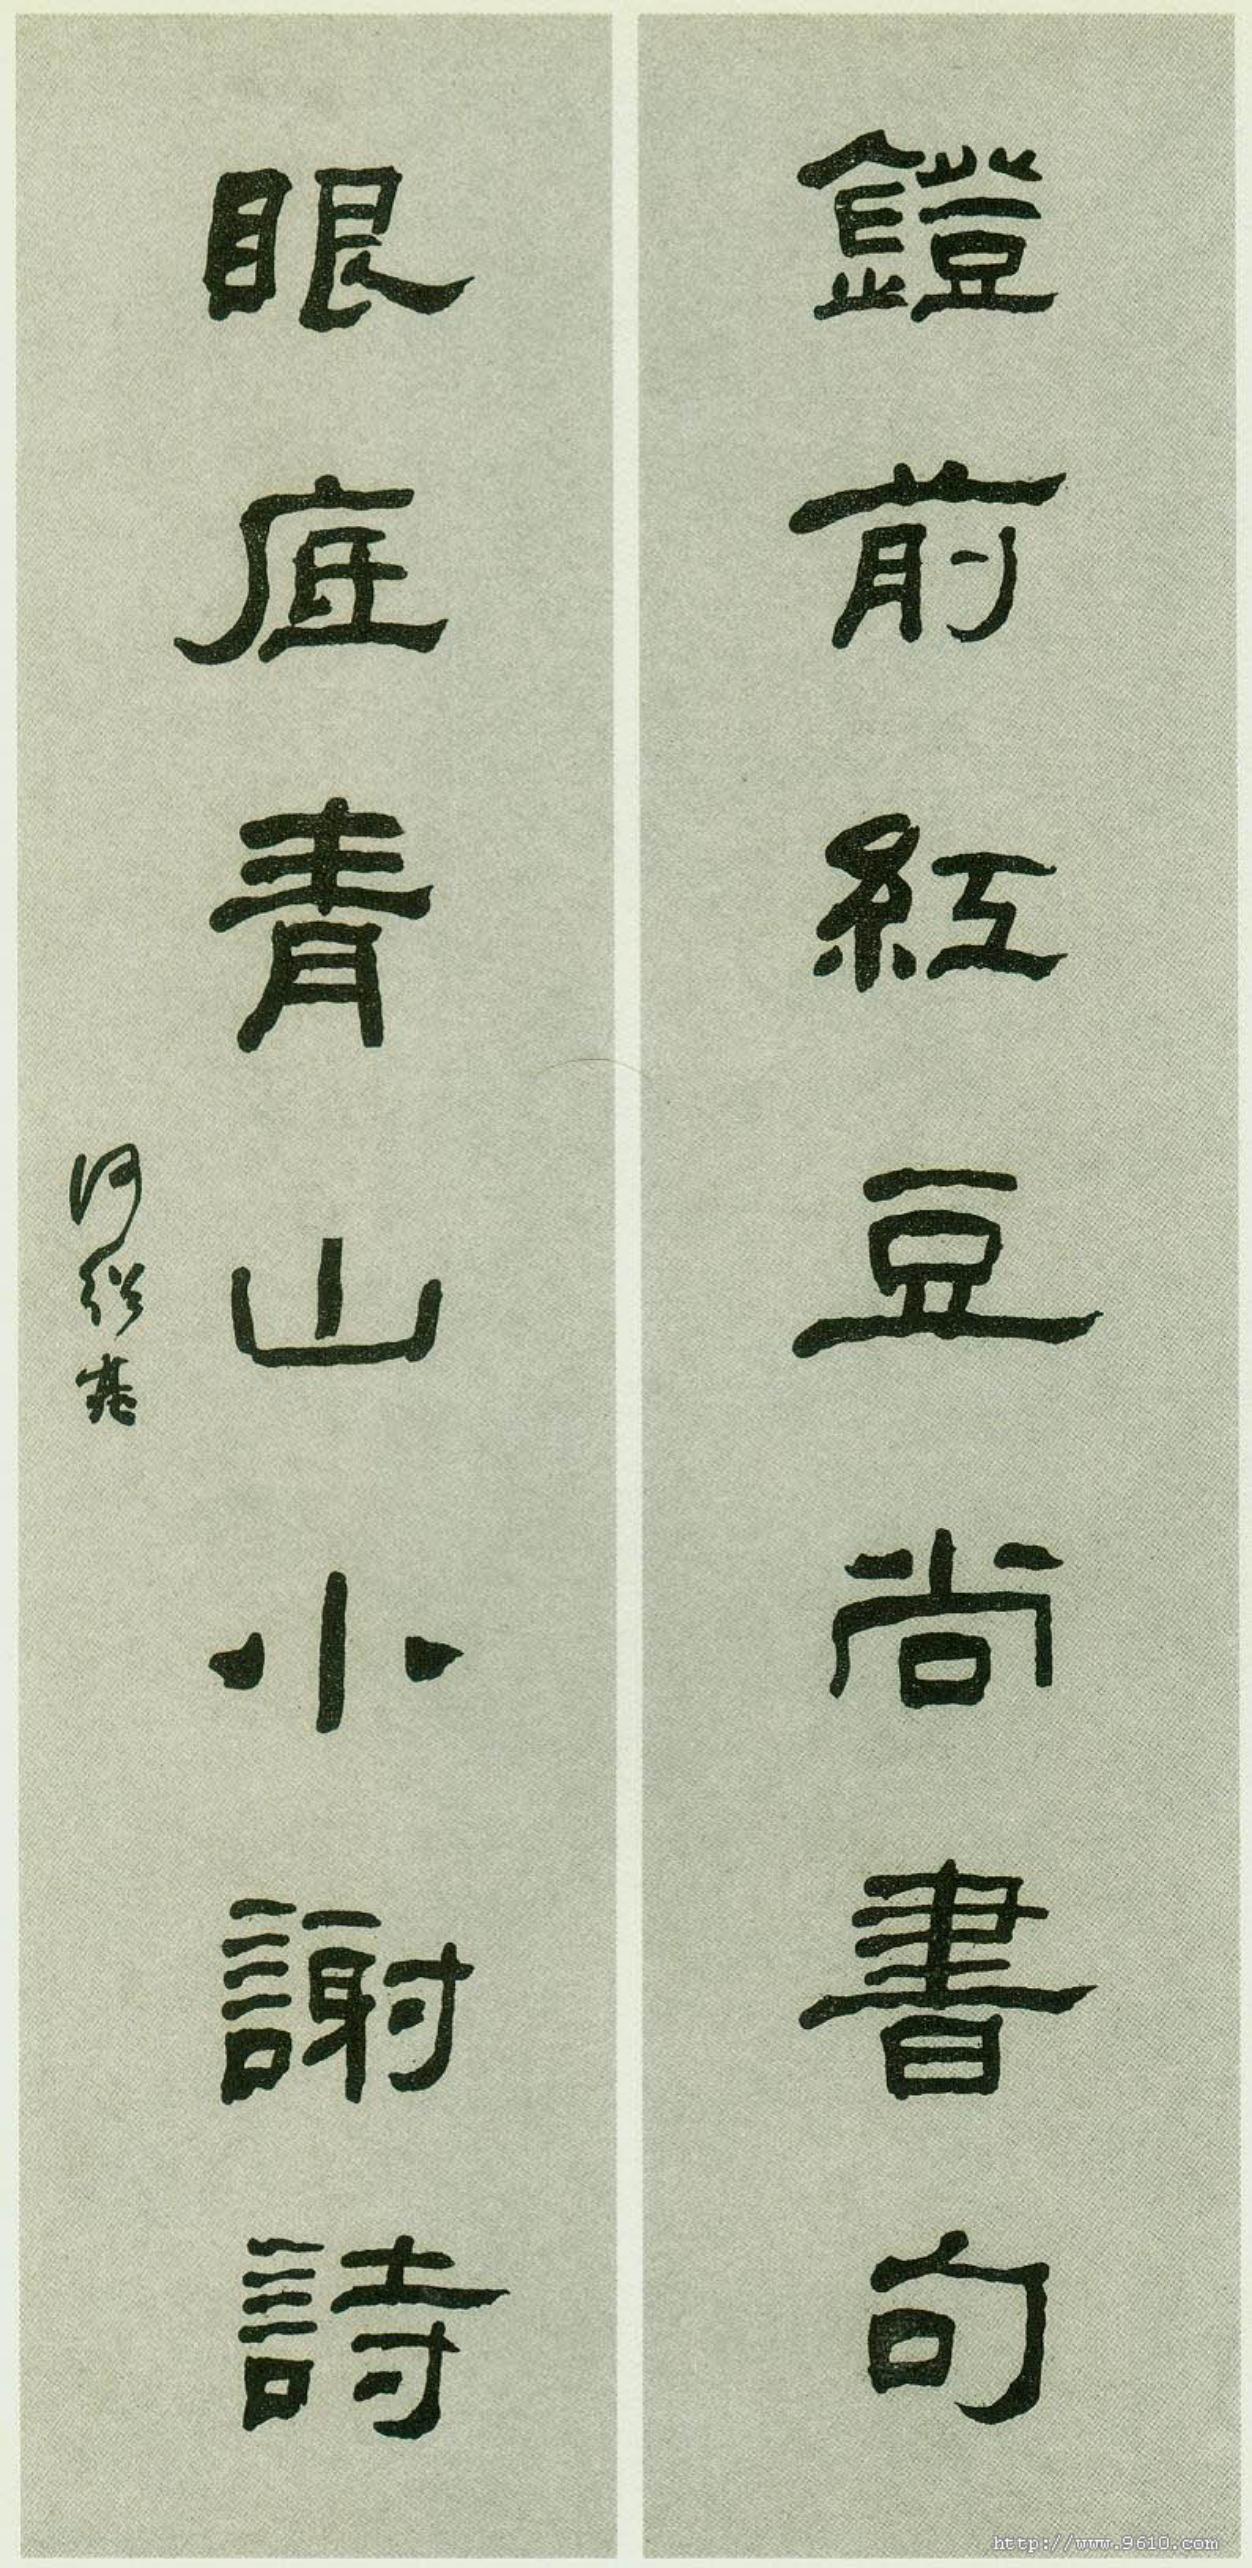 鐙前紅豆尚書句
眼底青山小謝詩
何紹基
http://www.9610.com